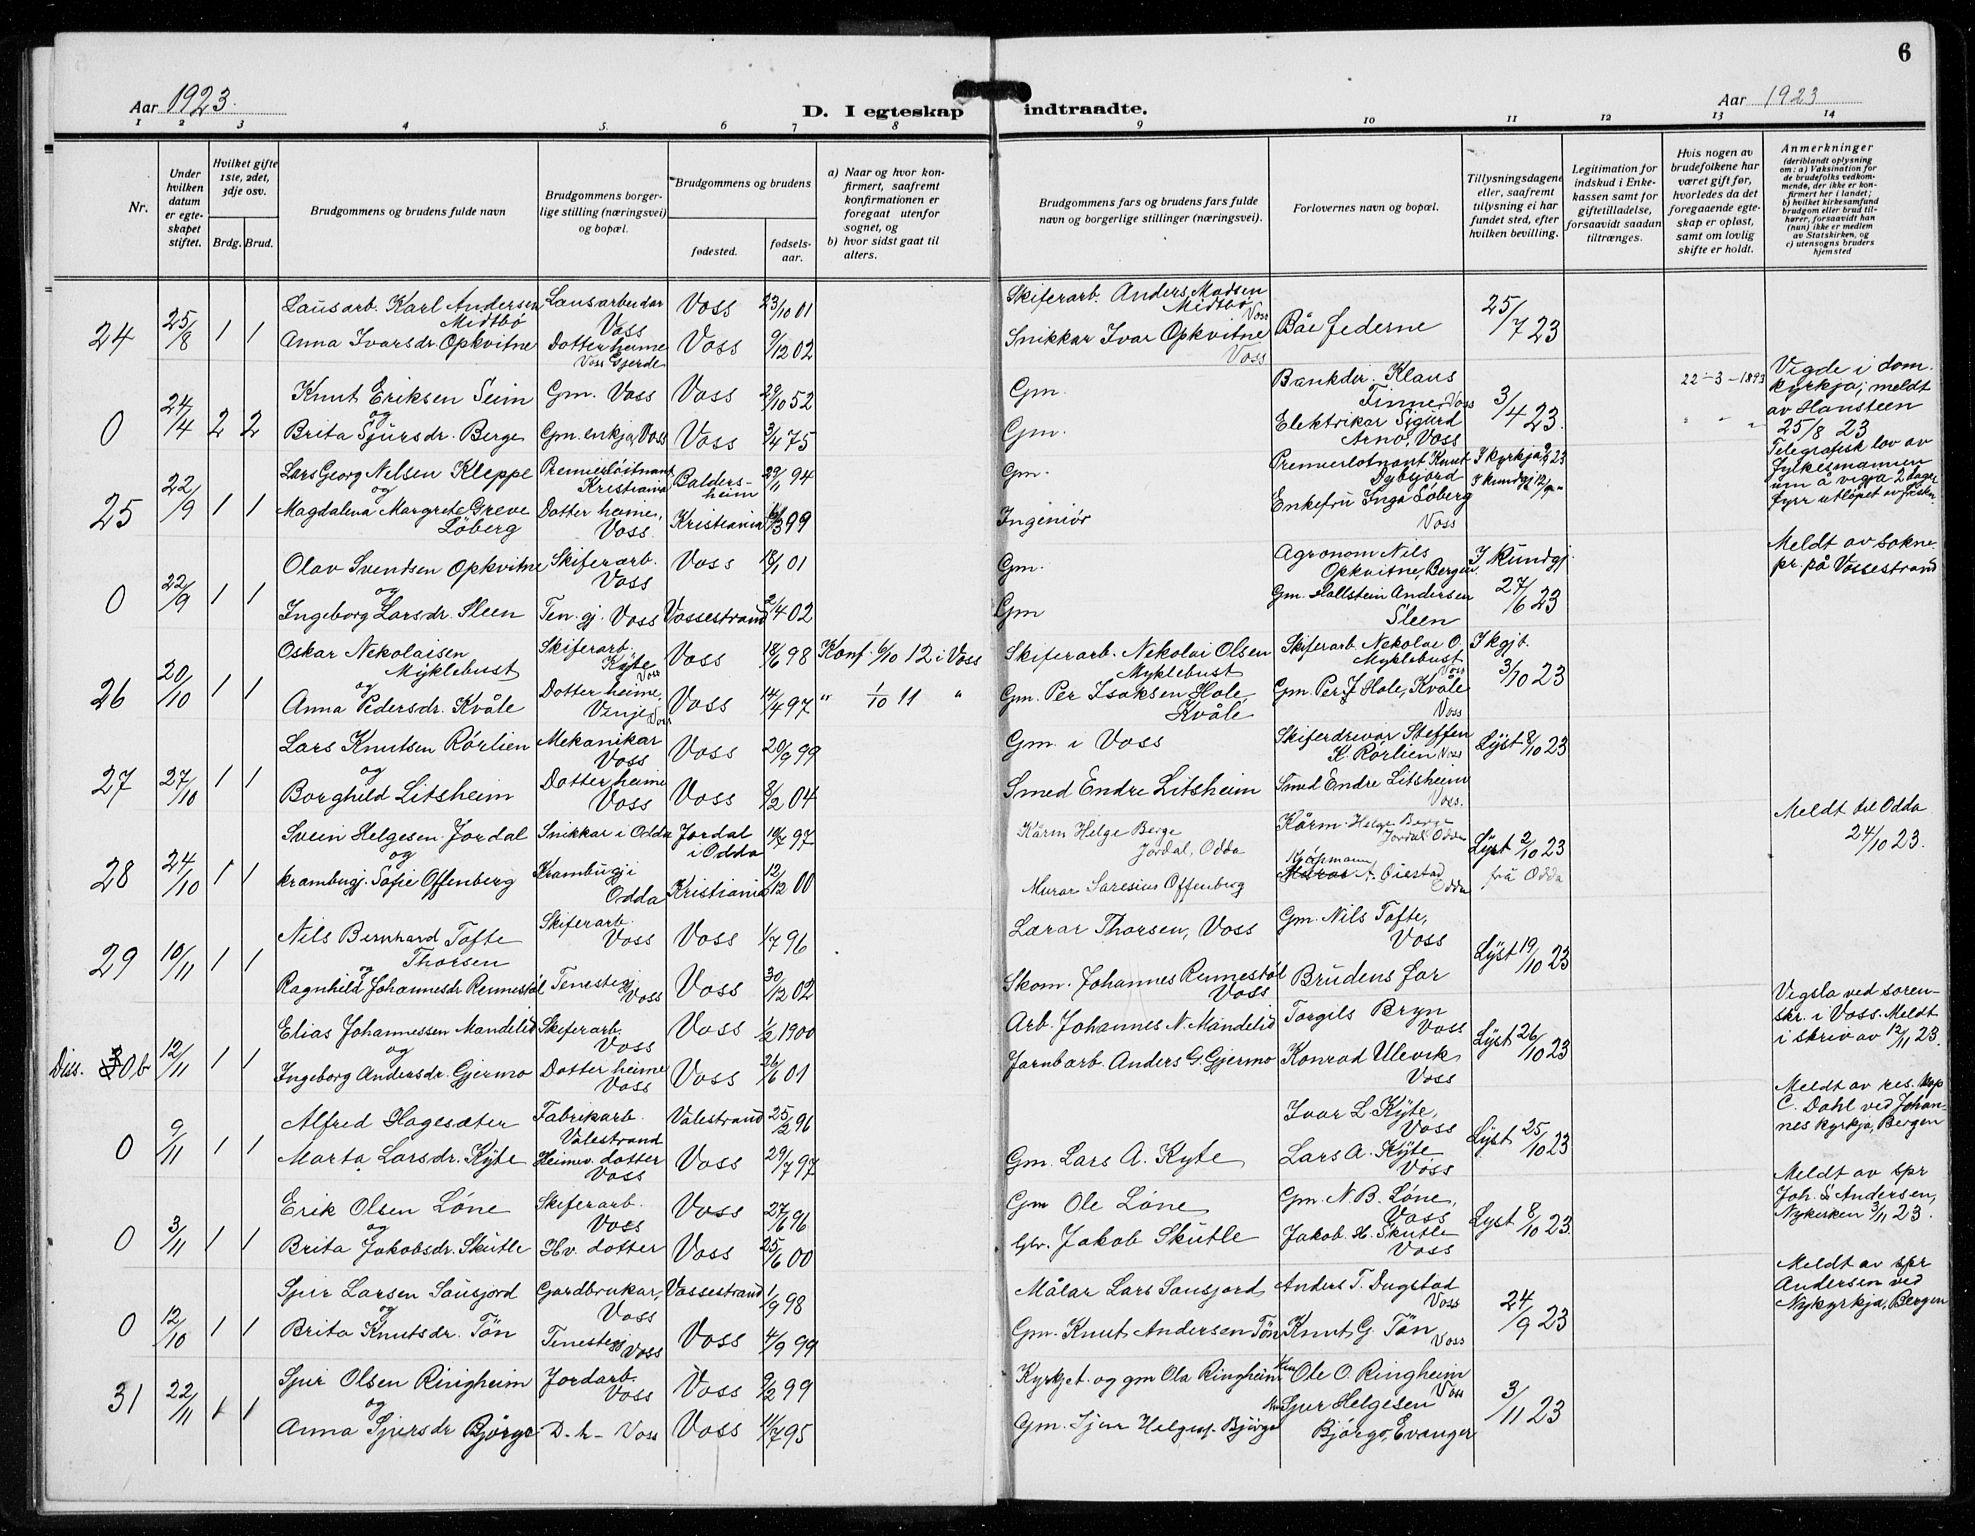 6
Aar 1923.
D. I egteskap indtraadte.
Aar 1923
1 2 3 4 5. 6 7 8 9 10 11 12 13 14
Nr.
Under hvilken datum er egteskapet stiftet.
Hvilket gifte 1ste, 2det, 3dje osv.
Brdg. Brud.
Brudgommens og brudens fulde navn
Brudgommens borgerlige stilling (næringsvei) og bopæl.
Brudgommens og brudens
fødested.
fødselsaar.
a) Naar og hvor konfirmert, saafremt konfirmationen er foregaat utenfor sognet, og
b) hvor sidst gaat til alters.
Brudgommens fars og brudens fars fulde navn og borgerlige stillinger (næringsvei).
Forlovernes navn og bopæl.
Tillysningsdagene eller, saafremt tillysning ei har fundet sted, efter hvilken bevilling.
Legitimation for indskud i Enkekassen samt for giftetilladelse, forsaavidt saadan tiltrænges.
Hvis nogen av brudefolkene har været gift før, hvorledes da det foregaaende egteskap er opløst, samt om lovlig skifte er holdt.
Anmerkninger
(deriblandt oplysning om: a) Vaksination for de brudefolks vedkommende, der ikke er konfirmert her i landet; b) hvilket kirkesamfund brudgom eller brud tilhører, forsaavidt han (hun) ikke er medlem av Statskirken, og c) utensogns bruders hjemsted
24 25/8 1 1 Lausarb. Karl Andersen Midtbö Lausarbeidar Voss Voss 23/10 01 Skiferarb. Anders Madsen Midtbö Voss Båe federne 25/7 23
Anna Ivarsdr. Opkvitne Dotter heime Voss Gjerde Voss 9/12 02 Snikkar Ivar Opkvitne Voss
0 24/4 2 2 Knut Eriksen Seim Gm. Voss Voss 29/10 52 Gm. Bankdir. Klaus Finne, Voss 3/4 23. 22-3-1893 Vigde i domkyrkja; meldt av Hansteen 25/8 23
og
Brita Sjursdr. Berge Gm. enkja Voss Voss 3/4 75 Gm. Elektrikar Sigurd Arno, Voss " - "
25 22/9 1 1 Lars Georg Nelsen Kleppe Premierlöitnant Kristiania Baldersheim 29/11 94 Gm. Premierlotnant Knut Dybsjord I kyrkja 9/9 23 Telegrafisk lov av fylkesmannen um å vigja 2 dager fyrr utlöpet av fristen
og
Magdalena Margrete Greve Löberg Dotter heime, Voss Kristiania 3 99 Ingeniör Enkefru Inga Löberg Voss I kundgj 12/9 "
0 22/9 1 1 Olav Svendsen Opkvitne Skiferarb. Voss Voss 18/1 01 Gm. Agronom Nils Opkvitne, Bergen I Kundgj. 27/6 23 Meldt av sokne pr. på Vossestrand
og
Ingeborg Larsdr. Sleen Ten. gj. Voss Vossestrand 2/4 02 Gm Gm. Hallstein Andersen Sleen
26 20/10 1 1 Oskar Nekolaisen Myklebust Skiferarb. Kyte Voss Voss 18/6 98 Konf. 6/10 12 i Voss Skiferarb. Nikolai Olsen Myklebust Skiferarb Nekolai O. Myklebust Voss I kgjt. 3/10 23
og
Anna Pedersdr. Kvåle Dotter heime, Vinje, Voss Voss 14/4 97 " 1/10 11 " Gm. Per Isaksen Hole, Kvåle Gm. Per J Hole, Kvåle Voss
27 27/10 1 1 Lars Knutsen Rörlien Mekanikar Voss Voss 20/9 99 Gm. i Voss Skiferdrivar Steffen K. Rörlien Voss Lyst 8/10 23
og
Borghild Litsheim Dotter heime Voss Voss 8/2 04 Smed Endre Litsheim Smed Endre Litsheim Voss.
28 24/10 1 1 Svein Helgesen Jordal Snikkar i Odda Jordal i Odda 10/7 97 Kårm Helge Berge Jordal, Odda Kårm. Helge Berge Jordal Odda Lyst 2/10 23 frå Odda Meldt til Odda 24/10 23.
og
krambugj. Sofie Offenberg Krambugj i Odda Kristiania 12/12 00 Murar Saresius Offenberg Kjöpmann A. Öiestad Odda
29 10/11 1 1 Nils Bernhard Tofte Thorsen Skiferarb. Voss Voss 1/7 96 Lærar Thorsen, Voss Gm. Nils Tofte, Voss Lyst 19/10 23
og
Ragnhild Johannesdr Rennestöl Tenestegj Voss Voss 30/12 02 Skom. Johannes Rennestöl Voss Brudens far
Diss. 30b 12/11 1 1 Elias Johannessen Mandelid Skiferarb. Voss Voss 1/2 1900 Arb. Johannes N. Mandelid Torgils Bryn Voss Lyst 26/10 23 Vigsla ved sorenskr. i Voss. Meldt i skriv av 12/11 23.
og
Ingeborg Andersdr. Gjermo Dotter heime Voss Voss 26/6 01 Jarnbarb. Anders G. Gjermo Konrad Ulevik Voss
0 9/11 1 1 Alfred Hagesæter Fabrikarb. Valestrand Valestrand 25/2 96 Ivar L Kyte, Voss Lyst 25/10 23 Meldt av res. kap C. Dahl ved Johannes kyrkja, Bergen
Marta Larsdr. Kyte Heimev. dotter Voss Voss 29/7 97 Gm. Lars A. Kyte Lars A. Kyte Voss
0 3/11 1 1 Erik Olsen Löne Skiferarb. Voss Voss 27/6 96 Gm Ole Löne Gm. N. B. Löne, Voss Lyst 8/10 23. Meldt av spr Joh. L Andersen, Nykerken 3/11 23.
og
Brita Jakobsdr. Skutle Hv. dotter Voss 25/6 00 Gbr. Jakob Skutle Jakob. H. Skutle Voss
0 12/10 1 1 Sjur Larsen Sausjord Gardbrukar, Voss Vossestrand 1/9 98 Målar Lars Sausjord Anders T. Dugstad Voss 24/9 23 Meldt av spr Andersen ved Nykyrkja, Bergen
og
Brita Knutsdr. Tön Tenestegj Voss Voss 4/9 99 Gm. Knut Andersen Tön Knut G. Tön Voss
31 22/11 1 1 Sjur Olsen Ringheim Jordarb. Voss Voss 9/2 99 Kyrkjet. og gm Ola Ringheim Ole O. Ringheim Voss 3/11 23
og
Anna Sjursdr Björgo D. h- Voss Voss 11/7 95 Gm. Sjur Helges. Björgo Sjur Helgesen Björgo, Evanger